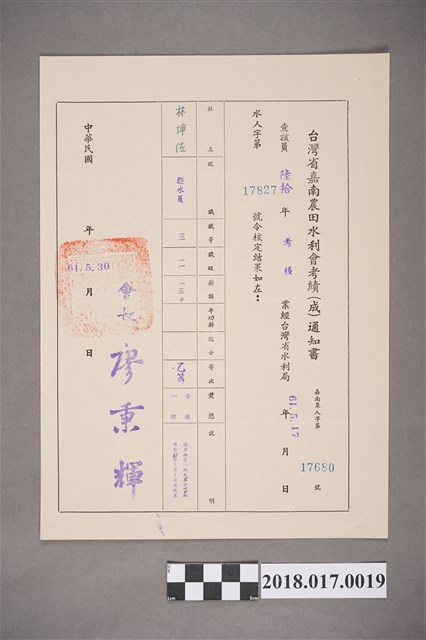 台灣省嘉南農田水利會考績(成)通知書
嘉南泉人字第
17680
號
查該員
陸拾
年
考核
業經台灣省水利局
61.5.17
年
月
日
水人字第
17827
號令核定結果如左:
姓名
職
職等
職級
薪額
年功薪
總分
等次
獎懲
說明
林坤任
三
一一
一三〇
乙等
中華民國
年
月
日
61.5.30
會長
廖秉輝
2018.017.0019